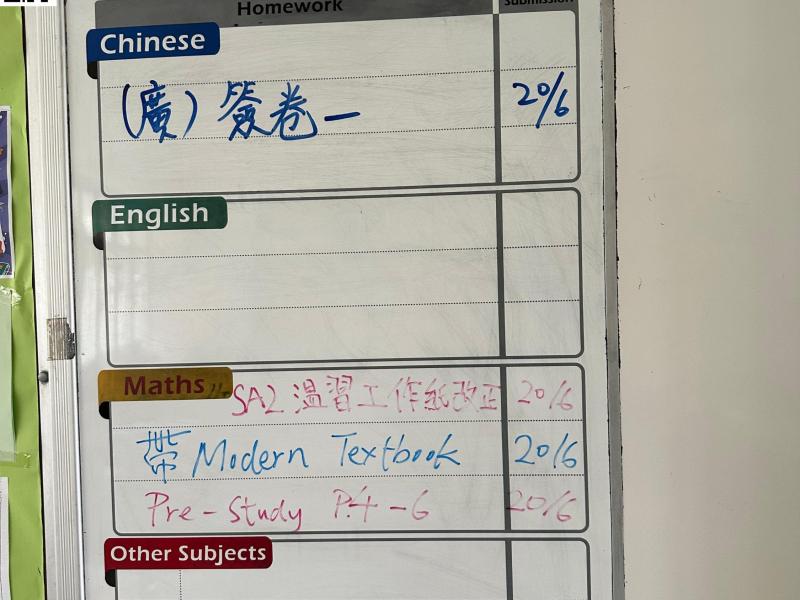 Homework
Submission
Chinese
(廣) 簽卷一 20/6
English
Maths
SA2 溫習工作紙改正 20/6
帶 Modern Textbook 20/6
Pre-Study P.4-6 20/6
Other Subjects